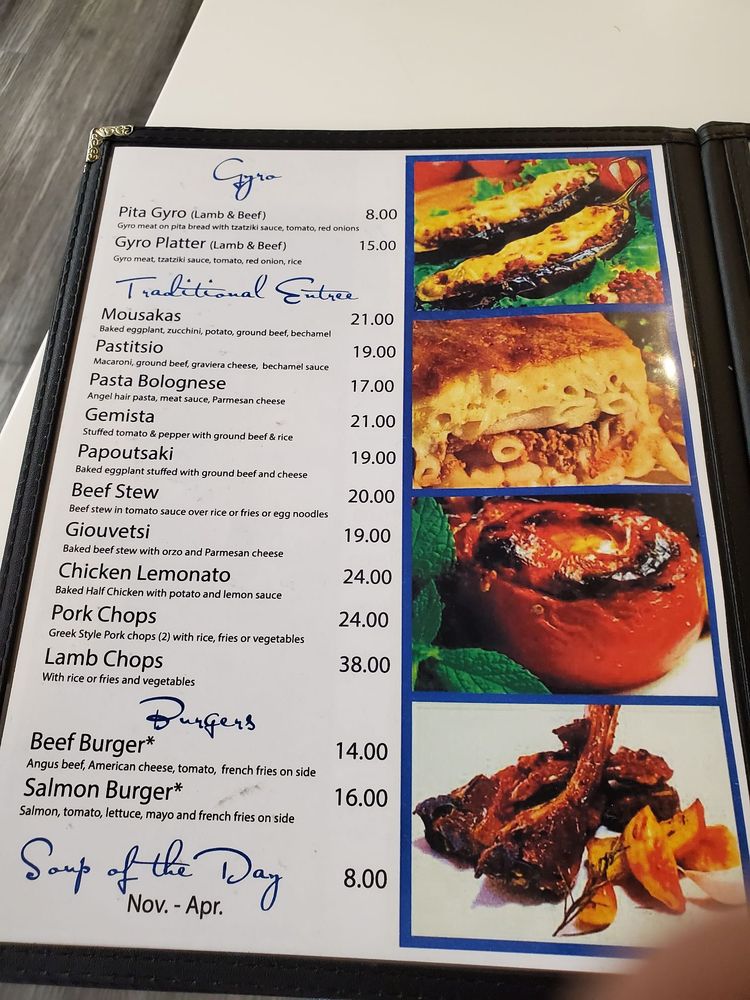 Gyro
Pita Gyro (Lamb & Beef) 8.00
Gyro meat on pita bread with tzatziki sauce, tomato, red onions
Gyro Platter (Lamb & Beef) 15.00
Gyro meat, tzatziki sauce, tomato, red onion, rice
Traditional Entree
Mousakas 21.00
Baked eggplant, zucchini, potato, ground beef, bechamel
Pastitsio 19.00
Macaroni, ground beef, graviera cheese, bechamel sauce
Pasta Bolognese 17.00
Angel hair pasta, meat sauce, Parmesan cheese
Gemista 21.00
Stuffed tomato & pepper with ground beef & rice
Papoutsaki 19.00
Baked eggplant stuffed with ground beef and cheese
Beef Stew 20.00
Beef stew in tomato sauce over rice or fries or egg noodles
Giouvetsi 19.00
Baked beef stew with orzo and Parmesan cheese
Chicken Lemonato 24.00
Baked Half Chicken with potato and lemon sauce
Pork Chops 24.00
Greek Style Pork chops (2) with rice, fries or vegetables
Lamb Chops 38.00
With rice or fries and vegetables
Burgers
Beef Burger* 14.00
Angus beef, American cheese, tomato, french fries on side
Salmon Burger* 16.00
Salmon, tomato, lettuce, mayo and french fries on side
Soup of the Day 8.00
Nov. - Apr.